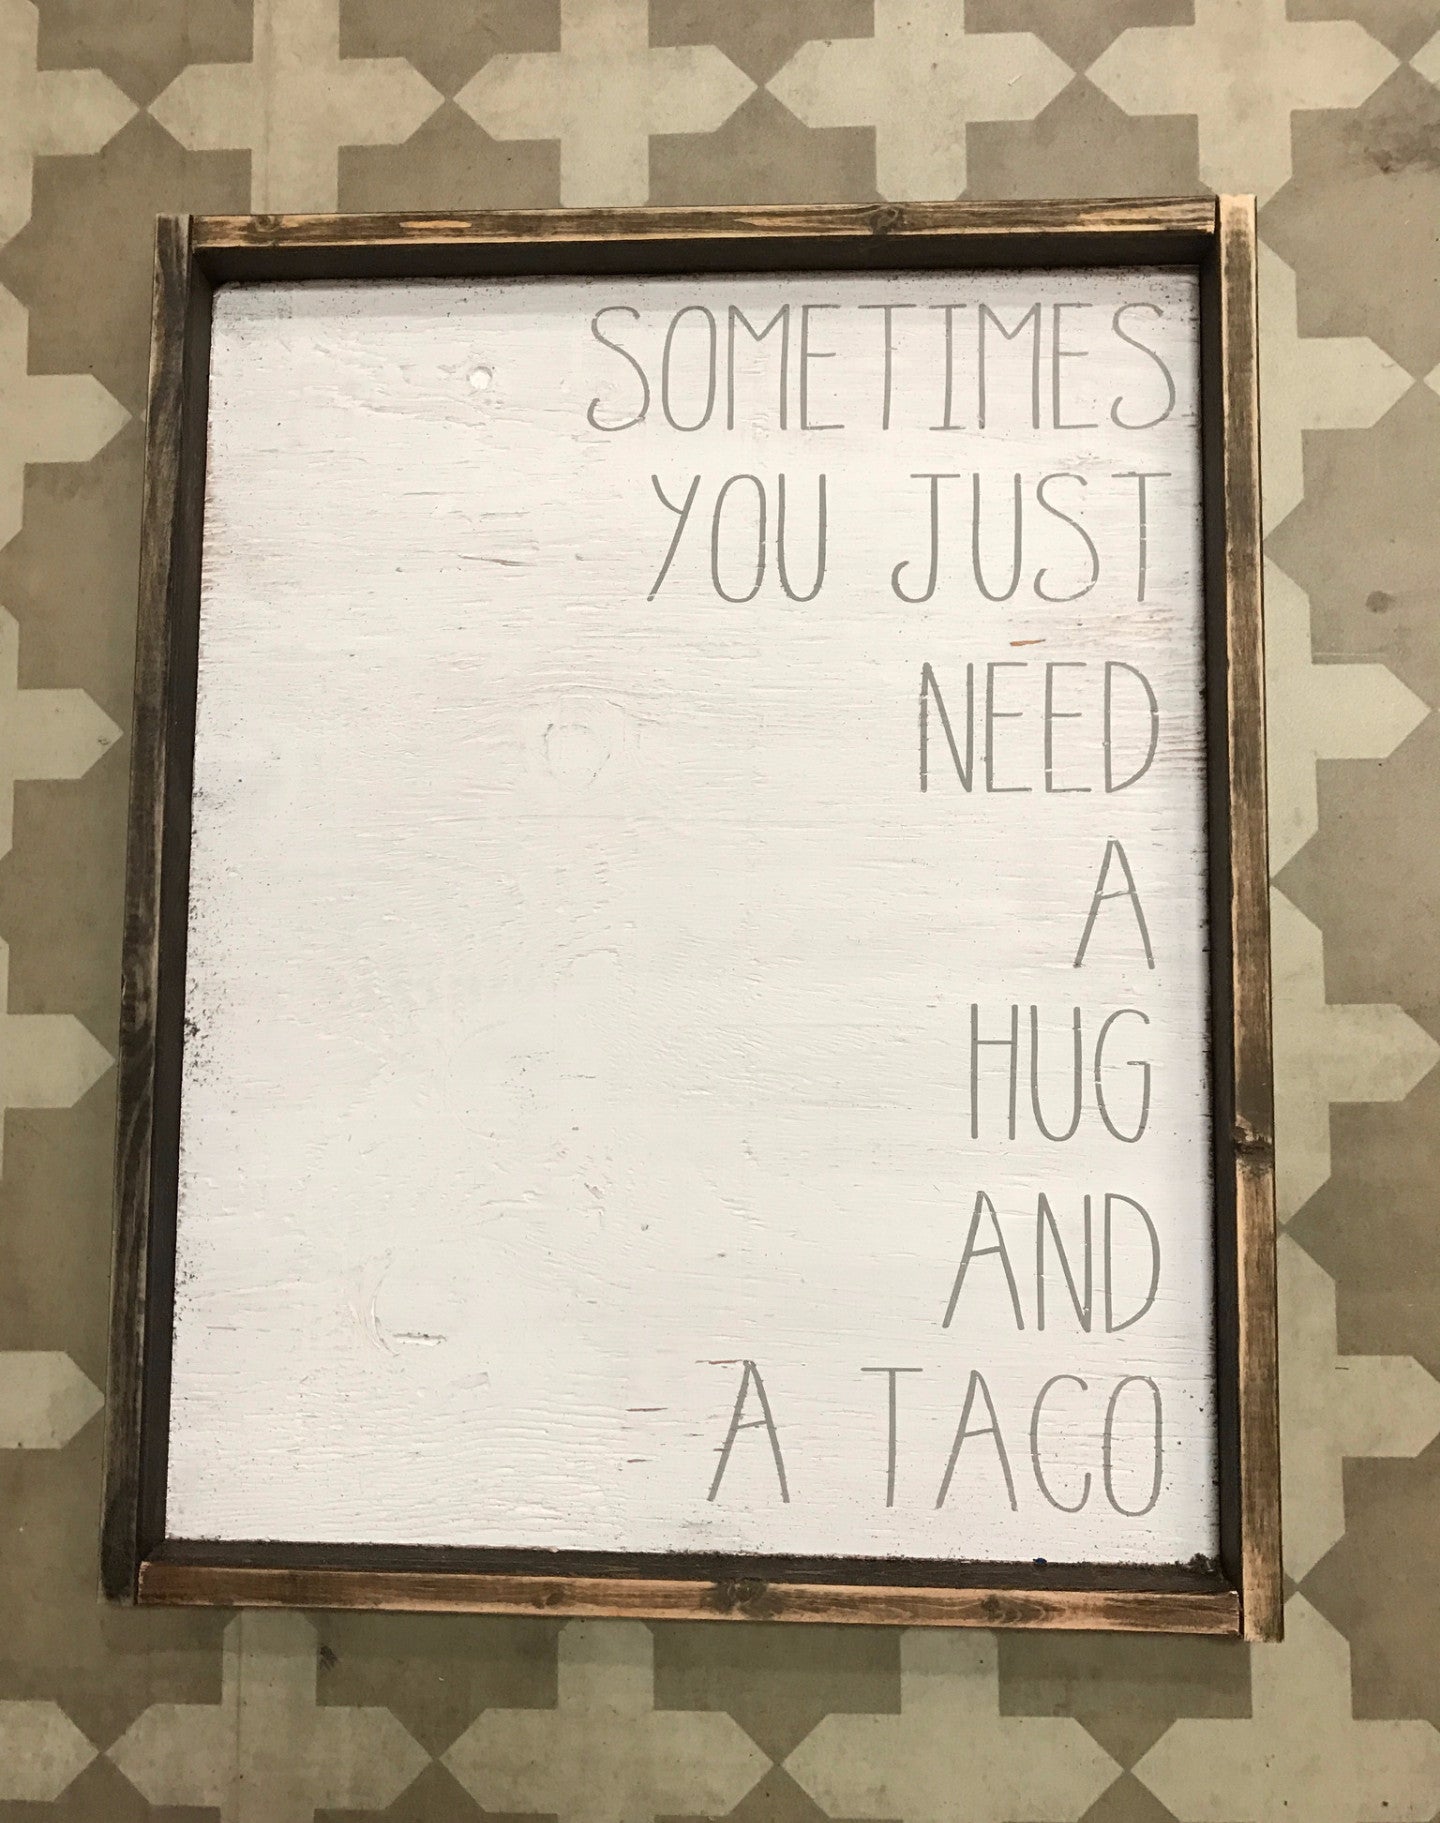 SOMETIMES
YOU JUST
NEED
A
HUG
AND
A TACO